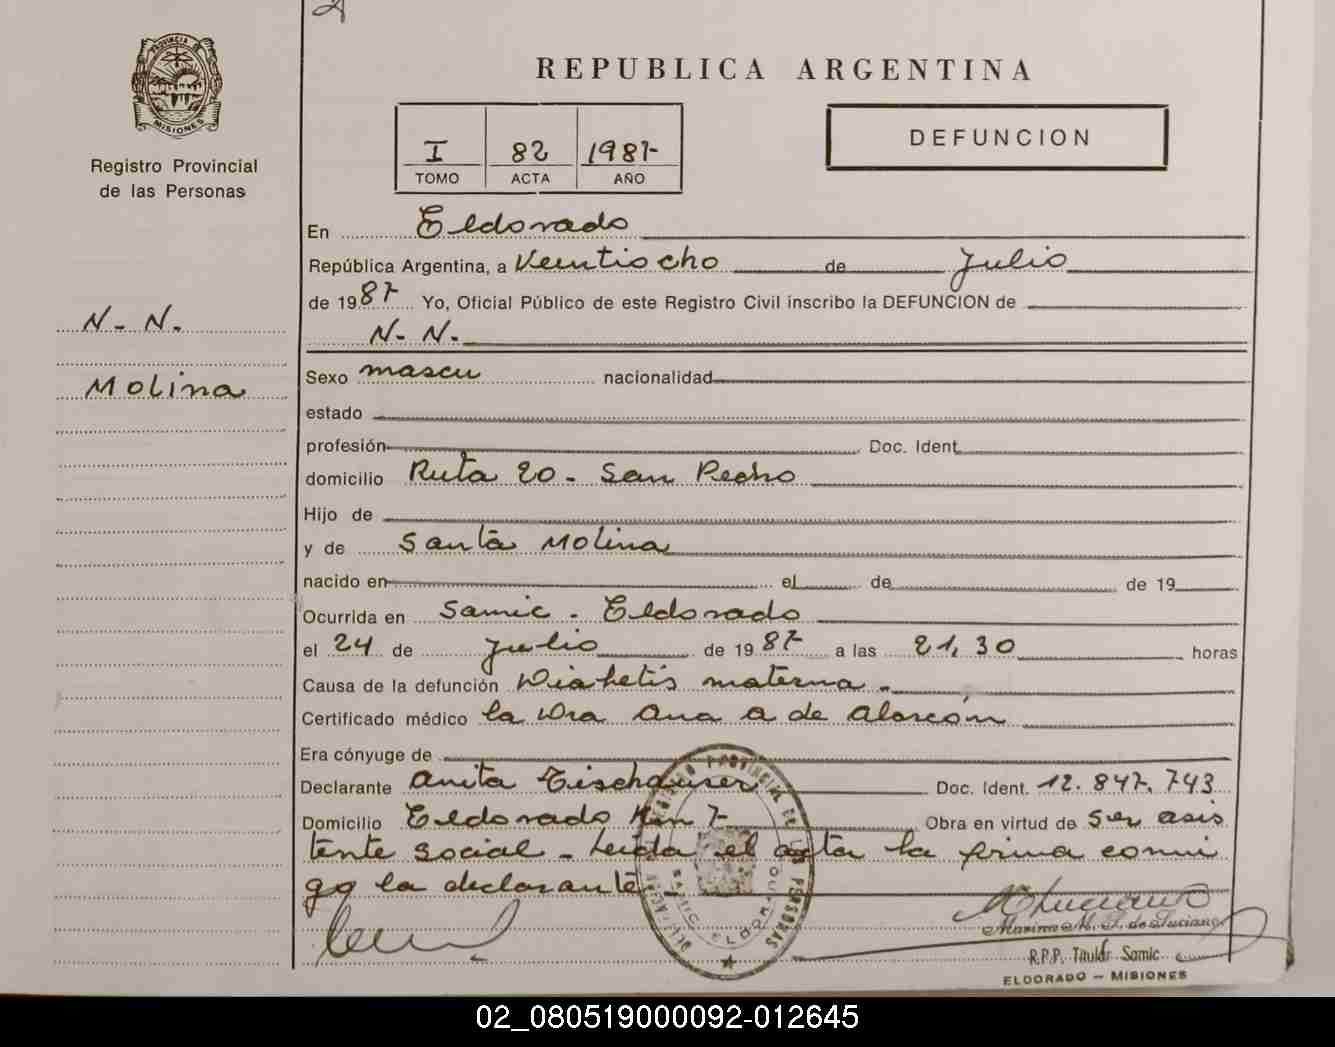 PROVINCIA DE
MISIONES
Registro Provincial
de las Personas
N. N.
Molina
REPUBLICA ARGENTINA
I 82 1987
TOMO ACTA AÑO
DEFUNCION
En Eldorado
República Argentina, a Veintiocho de Julio
de 1987 Yo, Oficial Público de este Registro Civil inscribo la DEFUNCION de
N. N.
Sexo mascu nacionalidad
estado
profesión Doc. Ident.
domicilio Ruta 20 - San Pedro
Hijo de
y de Santa Molina
nacido en el de de 19
Ocurrida en Samic - Eldorado
el 24 de Julio de 1987 a las 21,30 horas
Causa de la defunción Diabetis materna -
Certificado médico la Dra Ana A de Alarcón
Era cónyuge de
Declarante Anita Tischauser Doc. Ident. 12.847.743
Domicilio Eldorado Km 7 Obra en virtud de ser asis
tente social - Leida el acta la firma conmi
go la declarante
PROVINCIAL DE LAS PERSONAS
SAMIC ELDORADO
Marina M. de Luciano
R.P.P. Titular Samic
ELDORADO - MISIONES
02_080519000092-012645